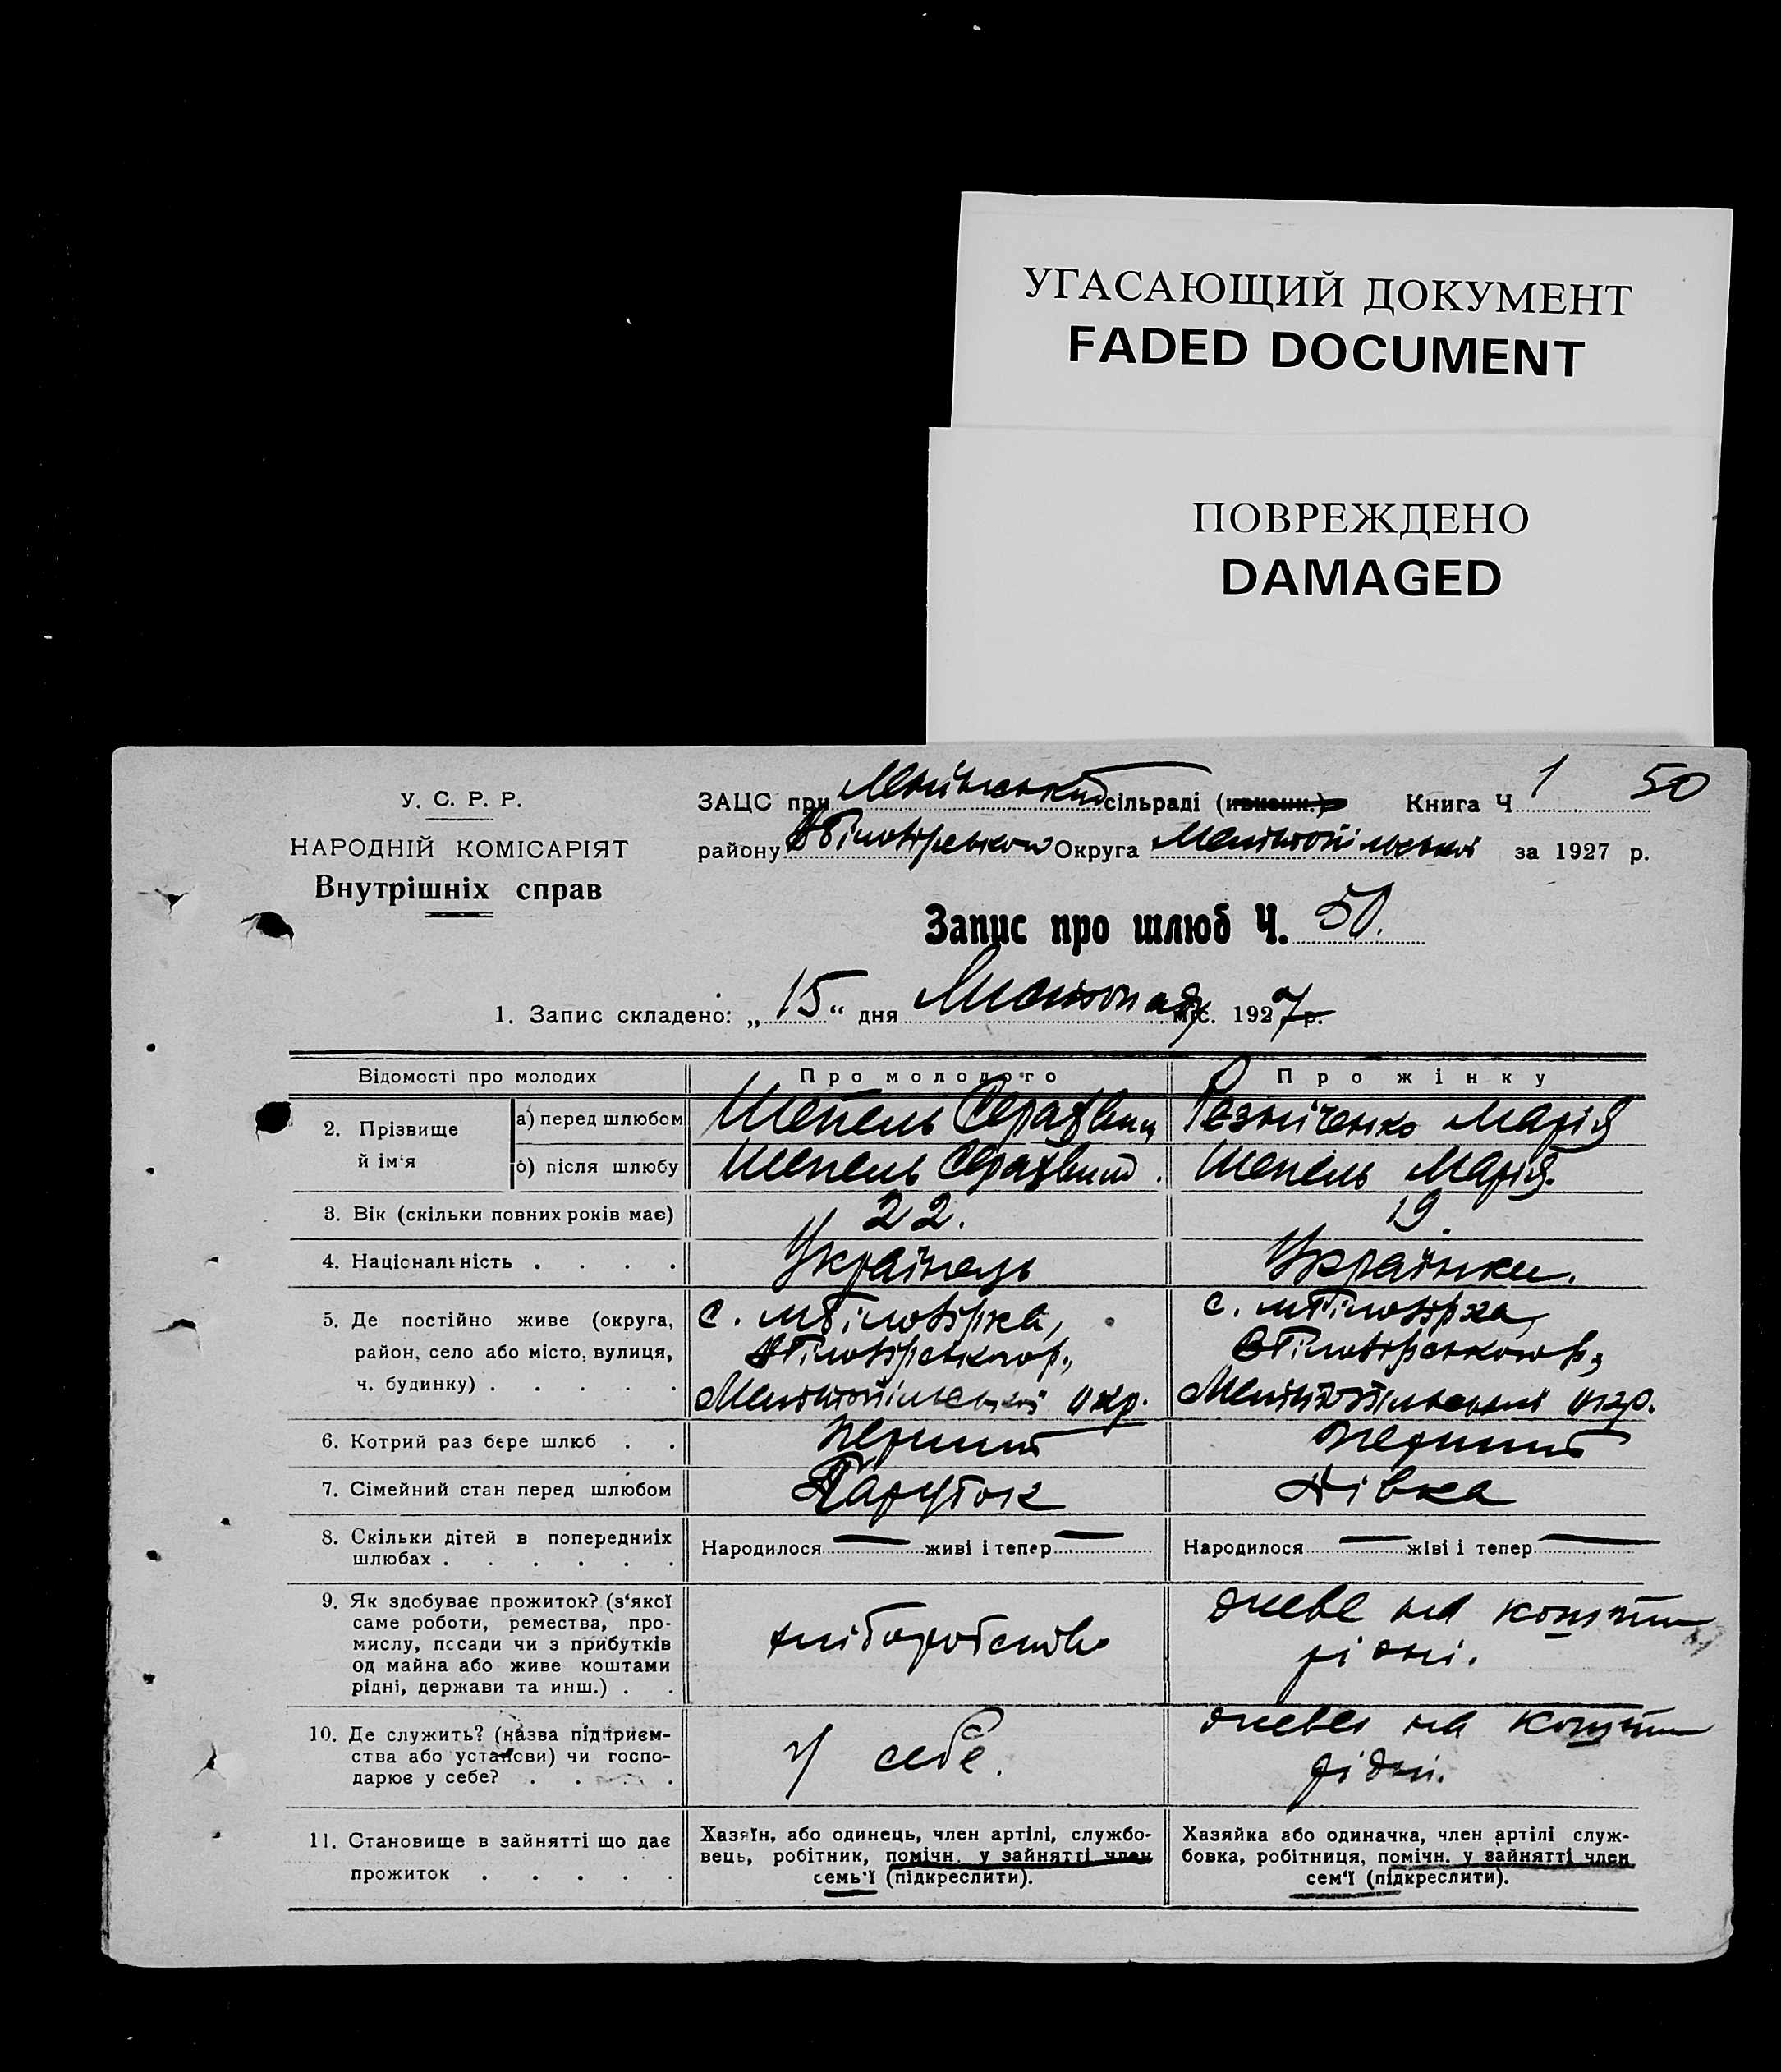 УГАСАЮЩИЙ ДОКУМЕНТ
FADED DOCUMENT
ПОВРЕЖДЕНО
DAMAGED
У. С. Р. Р.
НАРОДНІЙ КОМІСАРІЯТ
Внутрішніх справ
ЗАЦС при сільраді Книга Ч 1 50
району Округа Мелітопільської за 1927 р.
Запис про шлюб Ч. 50.
1. Запис складено: „ 15 “ дня Листопада міс. 1927 р.
Відомості про молодих Про молодого Про жінку
2. Прізвище й ім‘я
а) перед шлюбом Шепель Резніченко Марія
б) після шлюбу Шепель Шепель Марія.
3. Вік (скільки повних років має) 22. 19.
4. Національність . . . . Українець Українка.
5. Де постійно живе (округа,
район, село або місто, вулиця,
ч. будинку) . . . . .
с. мБілозірка,
ВБілозірського р.,
Мелітопільської окр.
с. мБілозірка,
ВБілозірського р.,
Мелітопільської окр.
6. Котрий раз бере шлюб . . перший перший
7. Сімейний стан перед шлюбом Парубок Дівка
8. Скільки дітей в попередніїх
шлюбах . . . . . .
Народилося — живі і тепер —
Народилося — жіві і тепер —
9. Як здобуває прожиток? (з‘якої
саме роботи, ремества, про-
мислу, посади чи з прибутків
од майна або живе коштами
рідні, держави та инш.) . .
хліборобство
живе на кошти
рідні.
10. Де служить? (назва підприєм-
ства або установи) чи госпо-
дарює у себе? . . . .
у себе.
живе на кошти
рідні.
11. Становище в зайнятті що дає
прожиток . . . . .
Хазяїн, або одинець, член артілі, службо-
вець, робітник, помічн. у зайнятті член
семь‘ї (підкреслити).
Хазяйка або одиначка, член артілі служ-
бовка, робітниця, помічн. у зайнятті член
сем‘ї (підкреслити).